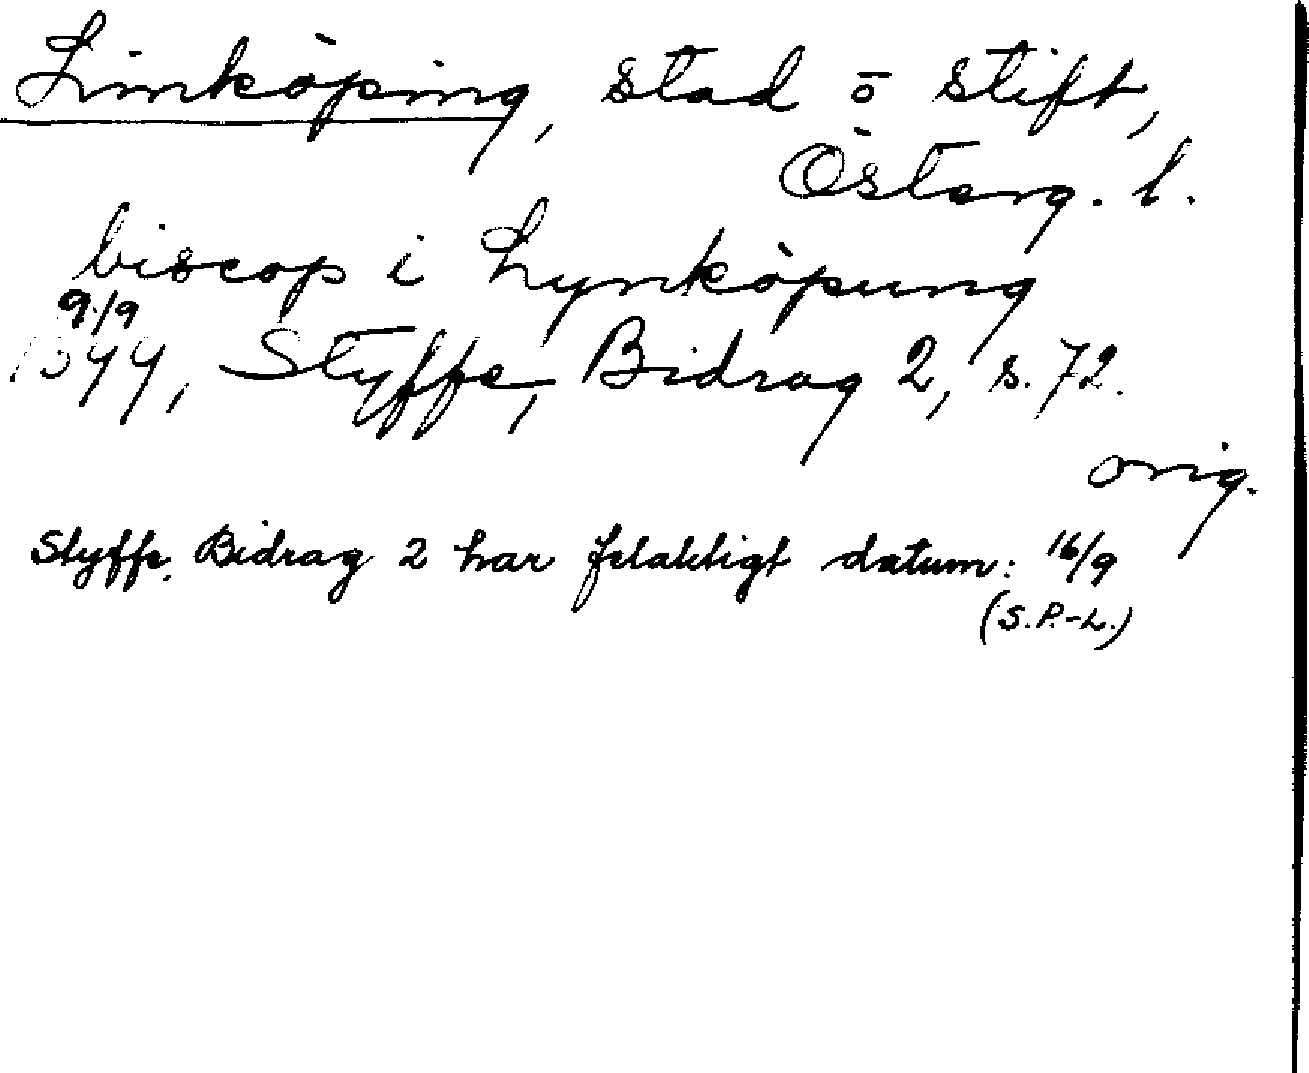 Linköping, stad ō stift,
Österg. l.
biscop i Lynköpung
9/9
1399, Styffe, Bidrag 2, s. 72.
orig.
Styffe, Bidrag 2 har felaktigt datum: 16/9
(S.P.-L.)